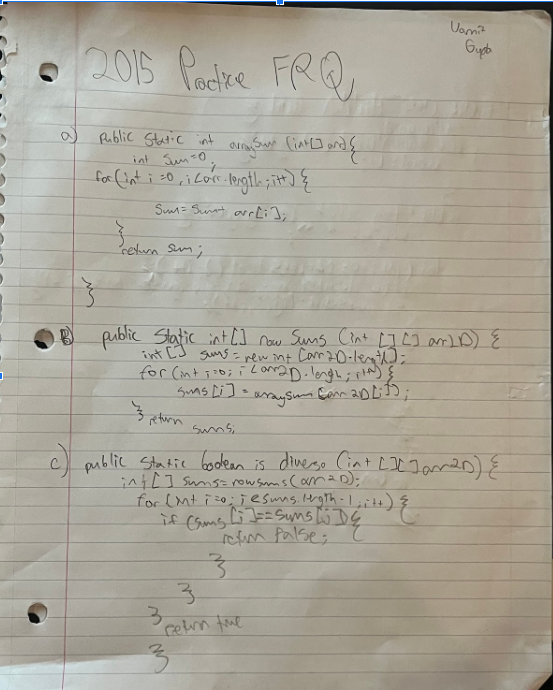 Vamit
Gupta
2015 Practice FRQ
a) public static int arraySum (int[] arr){
int sum=0;
for(int i =0, i<arr.length; i++) {
sum= sum+ arr[i];
}
return sum;
}
B) public static int[] row Sums (int [][] arr2D) {
int[] sums = new int [arr2D.length];
for (int i=0; i<arr2D.length; i++) {
sums[i] = arraysum (arr2D[i]);
} return
sums;
c) public static boolean is diverse (int [][] arr2D) {
int[] sums=rowsums(arr2D);
for (int i=0; i<sums.length-1; i++) {
if (sums[i]==sums[j]) {
return false;
}
}
} return true
}